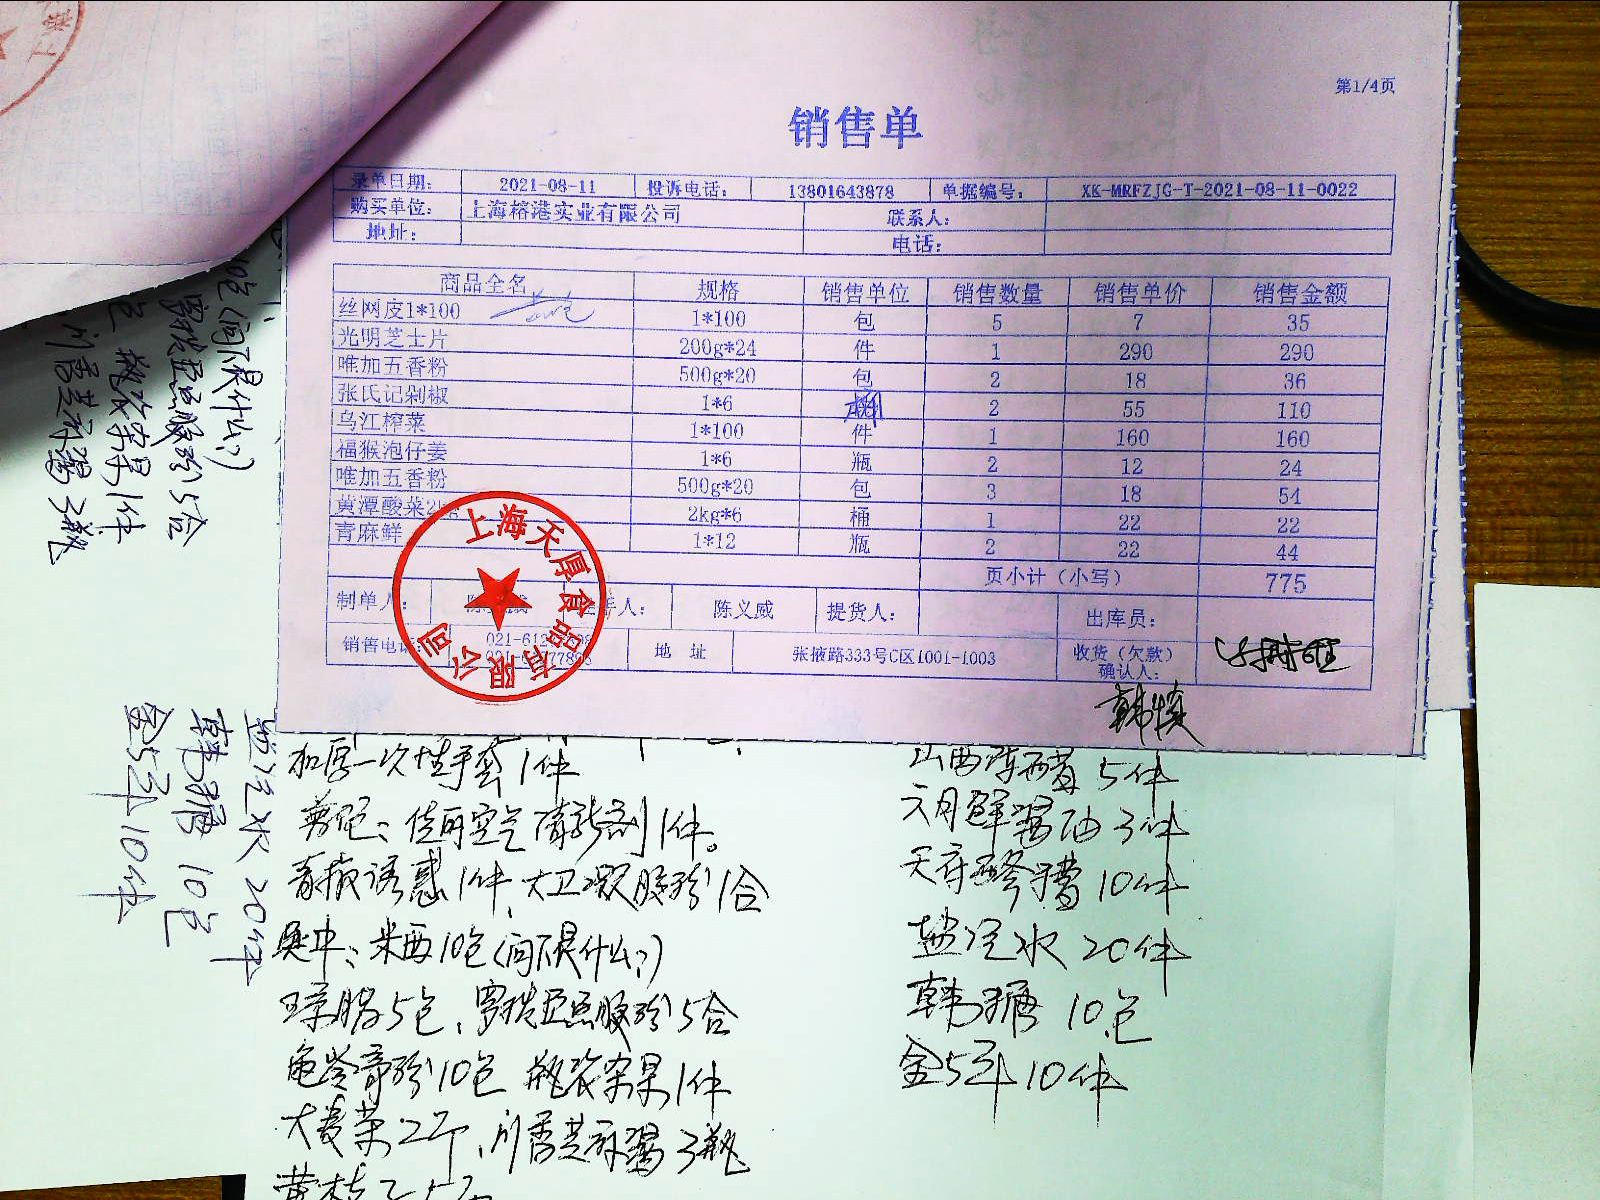 第1/4页
销售单
录单日期： 2021-08-11 投诉电话： 13801643878 单据编号： XK-MRFZJG-T-2021-08-11-0022
购买单位： 上海榕港实业有限公司 联系人：
地址： 电话：
商品全名 规格 销售单位 销售数量 销售单价 销售金额
丝网皮1*100 1*100 包 5 7 35
光明芝士片 200g*24 件 1 290 290
唯加五香粉 500g*20 包 2 18 36
张氏记剁椒 1*6 2 55 110
乌江榨菜 1*100 件 1 160 160
福猴泡仔姜 1*6 瓶 2 12 24
唯加五香粉 500g*20 包 3 18 54
黄潭酸菜2kg 2kg*6 桶 1 22 22
青麻鲜 1*12 瓶 2 22 44
页小计（小写） 775
制单人： 陈义威 提货人： 出库员：
销售电话： 021-61 地 址 张掖路333号C区1001-1003 收货（欠款）
确认人：
上海天厚食品有限公司
加厚一次性手套1件
佳丽空气清新剂1件。
诱惑1件、大卫凝胶粉1合
米西10包(问不是什么?)
5包、罗拔臣鱼胶粉5合
龟苓膏粉10包 瓶装杂果1件
大麦菜2斤、川香芝麻酱3瓶
山西陈醋5件
六月鲜酱油3件
天府醪糟10件
盐汽水20件
韩糖10包
金5斗10件
(问不是什么?)
罗拔臣鱼胶粉5合
瓶装杂果1件
川香芝麻酱3瓶
盐汽水20件
韩糖10包
金5斗10件